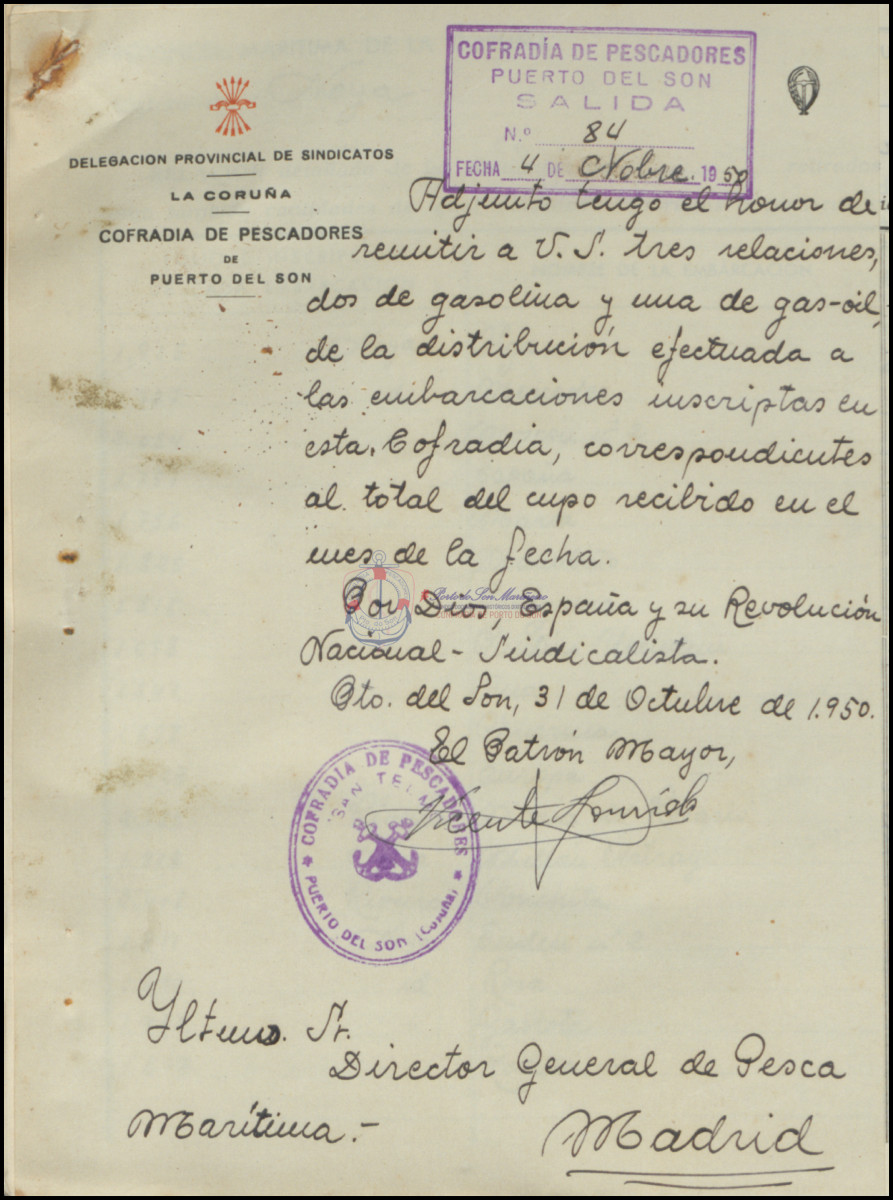 COFRADÍA DE PESCADORES
PUERTO DEL SON
SALIDA
N.º 84
FECHA 4 DE Nobre. 1950
DELEGACION PROVINCIAL DE SINDICATOS
LA CORUÑA
COFRADIA DE PESCADORES
DE
PUERTO DEL SON
Adjunto tengo el honor de
remitir a V. S. tres relaciones,
dos de gasolina y una de gas-oil,
de la distribución efectuada a
las embarcaciones inscriptas en
esta Cofradia, correspondientes
al total del cupo recibido en el
mes de la fecha.
Por Dios, España y su Revolución
Nacional-Sindicalista.
Pto. del Son, 31 de Octubre de 1.950.
El Patrón Mayor,
Vicente
COFRADIA DE PESCADORES
SAN TELMO
PUERTO DEL SON (CORUÑA)
Iltmo. Sr.
Director General de Pesca
Marítima.-
Madrid